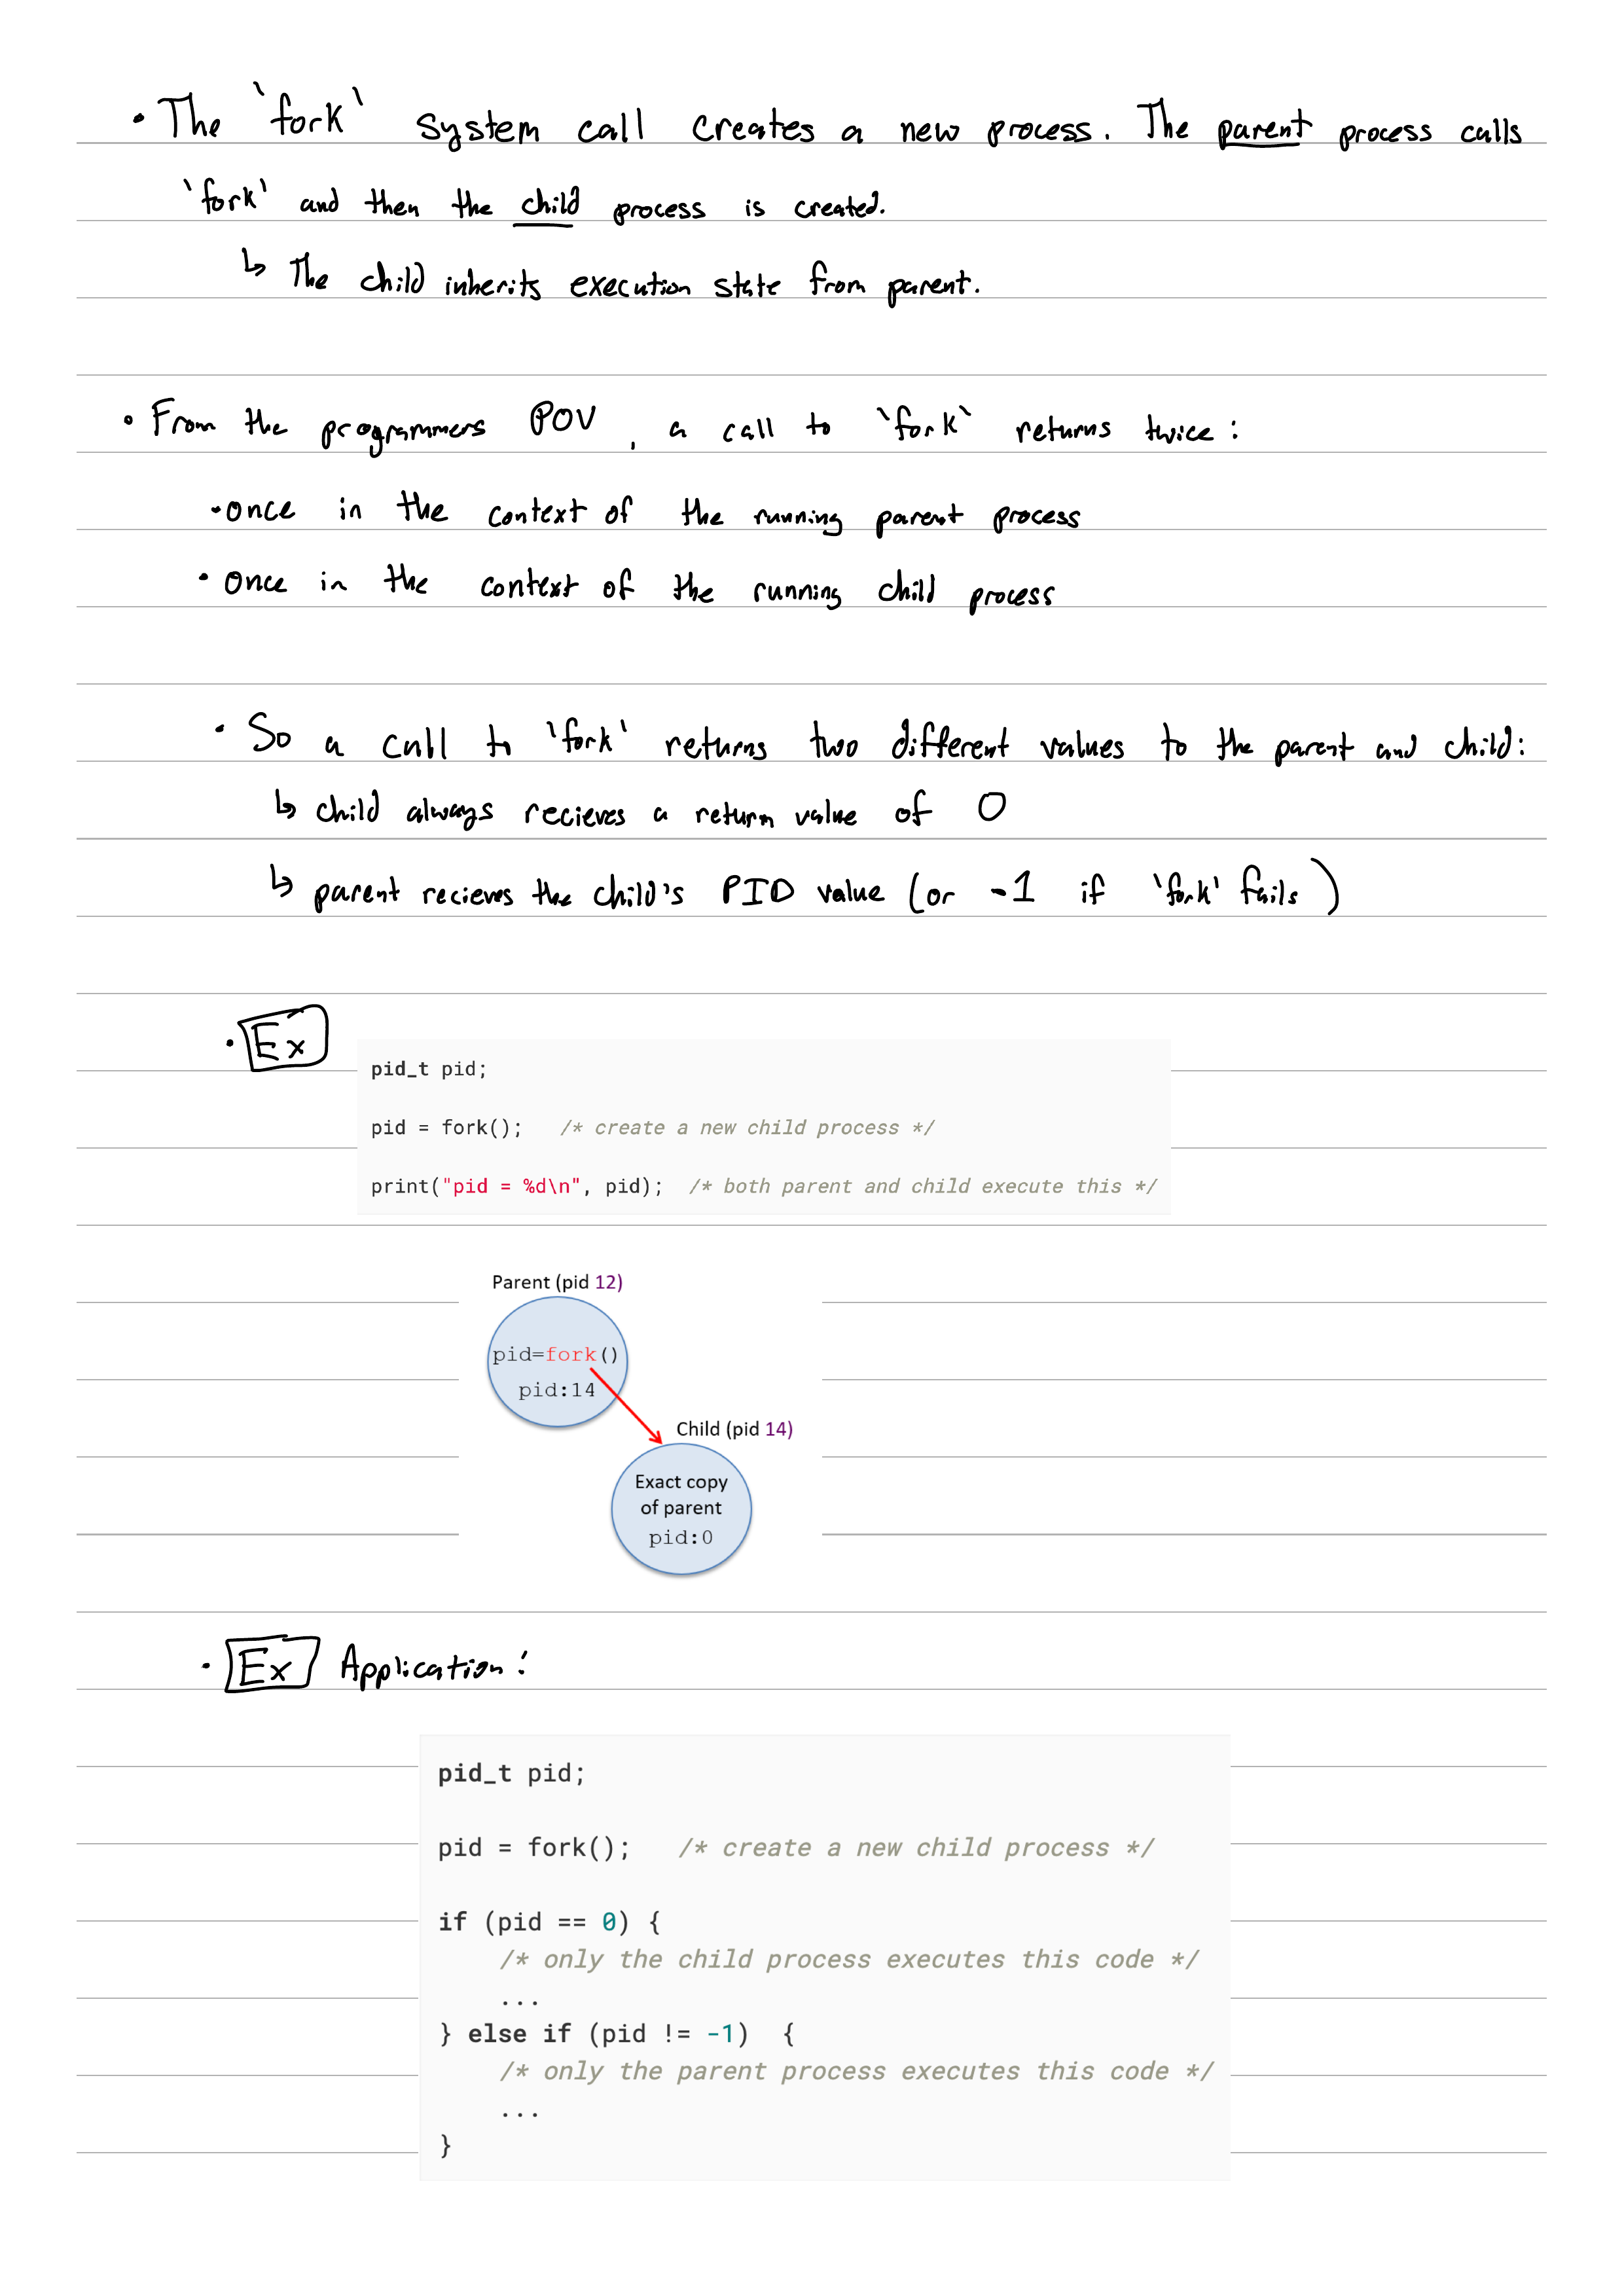 • The `fork` system call creates a new process. The parent process calls
`fork' and then the child process is created.
↳ The child inherits execution state from parent.
• From the programmers POV, a call to `fork` returns twice:
• once in the context of the running parent process
• once in the context of the running child process
• So a call to 'fork' returns two different values to the parent and child:
↳ child always recieves a return value of 0
↳ parent recieves the child's PID value (or -1 if 'fork' fails)
• Ex
pid_t pid;
pid = fork();   /* create a new child process */
print("pid = %d\n", pid);  /* both parent and child execute this */
Parent (pid 12)
pid=fork()
pid:14
Child (pid 14)
Exact copy
of parent
pid:0
• Ex Application:
pid_t pid;
pid = fork();   /* create a new child process */
if (pid == 0) {
    /* only the child process executes this code */
    ...
} else if (pid != -1)  {
    /* only the parent process executes this code */
    ...
}